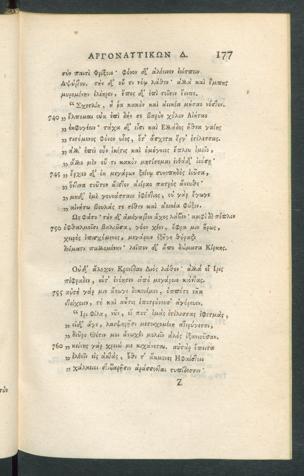 ΑΡΓΟΝΑΥΤΙΚΩΝ Δ. 177
σὺν παισὶ Φρίξοιο· φόνον δ᾽ ἀλέεινεν ἐνισπεῖν
Ἀψύρτου. τὴν δ᾽ οὔ τι νόῳ λάθεν· ἀλλὰ καὶ ἔμπης
μυρομένην ἐλέηρεν, ἔπος δ᾽ ἐπὶ τοῖον ἔειπεν·
“Σχετλίη, ἦ ῥα κακὸν καὶ ἀεικέα μήσαο νόστον.
740 „ ἔλπομαι οὐκ ἐπὶ δήν σε βαρὺν χόλον Αἰήταο
„ ἐκφυγέειν· τάχα δ᾽ εἶσι καὶ Ἑλλάδος ἤθεα γαίης
„ τισόμενος φόνον υἷος, ὅτ᾽ ἄσχετα ἔργ᾽ ἐτέλεσσας.
„ ἀλλ᾽ ἐπεὶ οὖν ἱκέτις καὶ ὁμόγνιος ἔπλευ ἐμεῖο,
„ ἄλλο μὲν οὔ τι κακὸν μητίσομαι ἐνθάδ᾽ ἰούσῃ·
745 „ ἔρχεο δ᾽ ἐκ μεγάρων ξείνῳ συνοπηδὸς ἐοῦσα,
„ ὅντινα τοῦτον ἄϊστον ἀείραο πατρὸς ἄνευθε·
„ μηδ᾽ ἐμὲ γουνάσσηαι ἐφέστιος, οὐ γὰρ ἔγωγε
„ αἰνήσω βουλάς τε σέθεν καὶ ἀεικέα φύξιν.
Ὣς φάτο· τὴν δ᾽ ἀμέγαρτον ἄχος λάβεν· ἀμφὶ δὲ πέπλον
750 ὀφθαλμοῖσι βαλοῦσα, γόον χέεν, ὄφρα μιν ἥρως,
χειρὸς ἐπισχόμενος, μεγάρων ἐξῆγε θύραζε
δείματι παλλομένην· λεῖπον δ᾽ ἀπὸ δώματα Κίρκης.
Οὐδ᾽ ἄλοχον Κρονίδαο Διὸς λάθον· ἀλλά οἱ Ἶρις
πέφραδεν, εὖτ᾽ ἐνόησεν ἀπὸ μεγάροιο κιόντας.
755 αὐτὴ γάρ μιν ἄνωγε δοκευέμεν, ὁππότε νῆα
στείχοιεν, τὸ καὶ αὖτις ἐποτρύνουσ᾽ ἀγόρευεν·
“Ἶρι Φίλα, νῦν, εἴ ποτ᾽ ἐμὰς ἐτέλεσσας ἐφετμὰς,
„ εἰ δ᾽ ἄγε, λαιψηρῇσι μετοιχομένη πτερύγεσσι,
„ δεῦρο Θέτιν μοι ἄνωχθι μολεῖν ἁλὸς ἐξανιοῦσαν.
760 „ κείνης γὰρ χρειώ με κιχάνεται. αὐτὰρ ἔπειτα
„ ἐλθεῖν εἰς ἀκτὰς, ὅθι τ᾽ ἄκμονες Ἡφαίστοιο
„ χάλκειοι στιβαρῇσιν ἀράσσονται τυπίδεσσιν·
Z